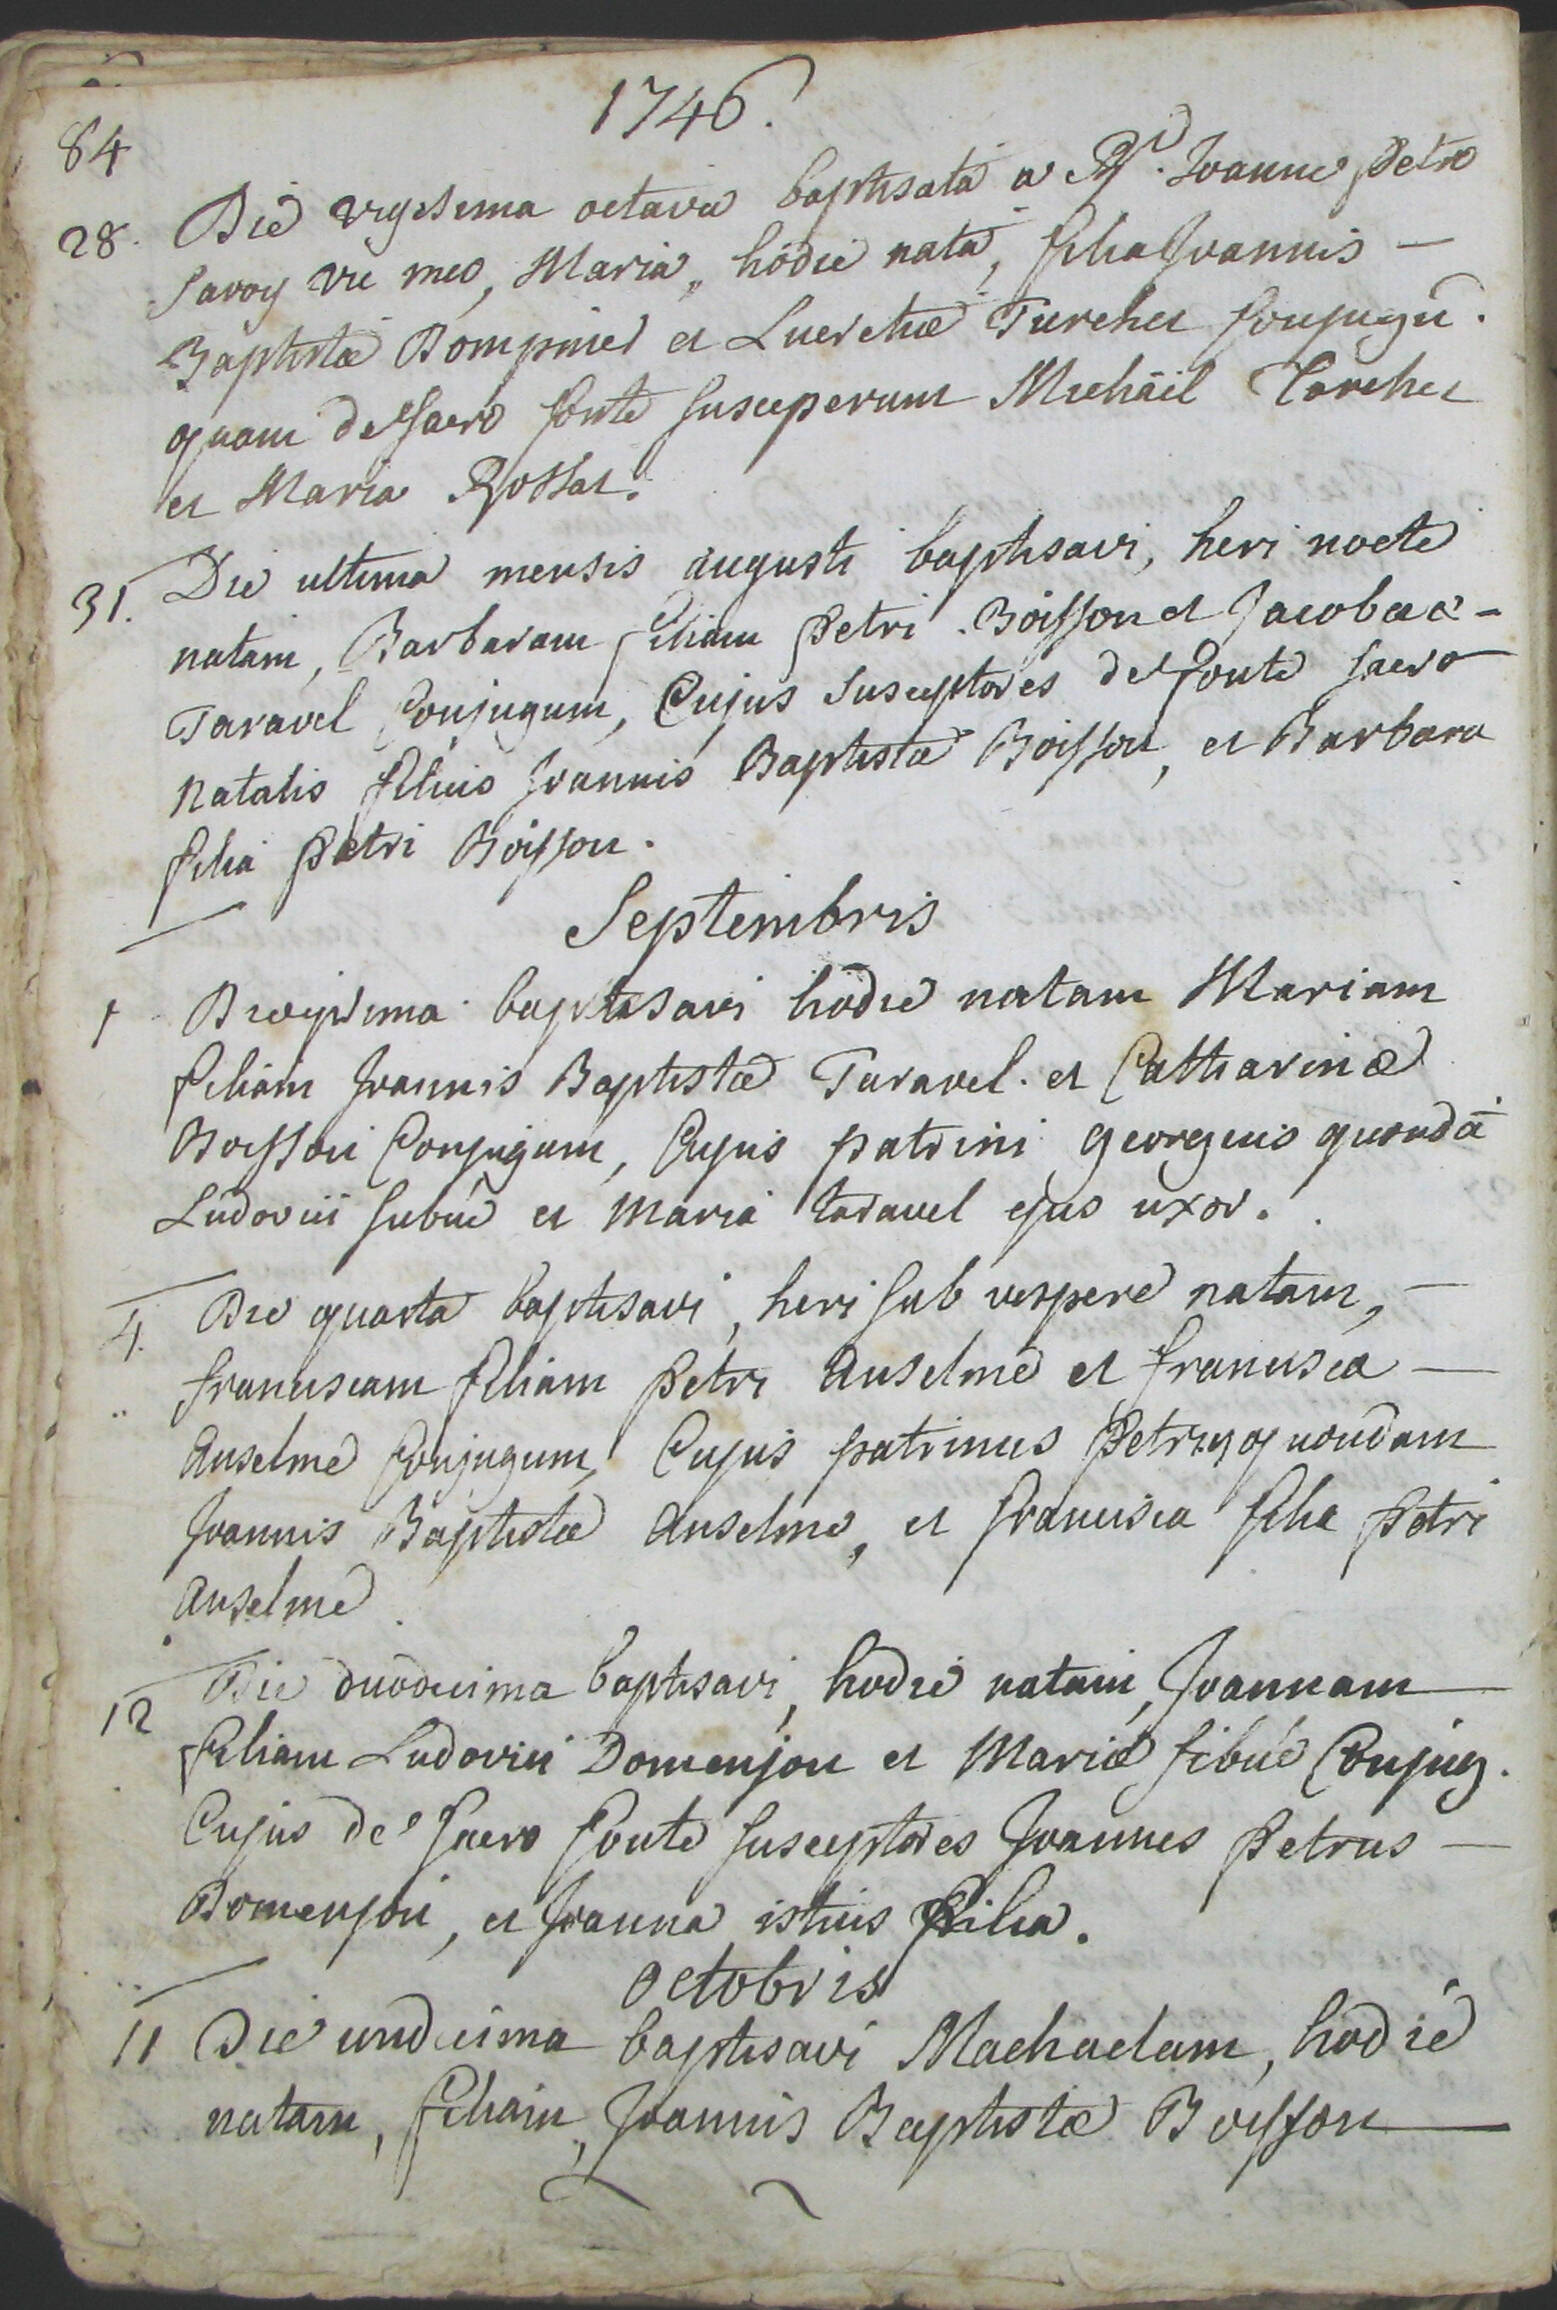 1746.
84
28. Die vigesima octava baptisata a Rd. Joanne Petro
Savoy vic meo, Maria, hodie nata, filia Joannis –
Baptistæ Dompnier et Lucretiæ Turchet Conjugū.
quam de sacro fonte susceperunt Michäil Torchet
et Maria Rossat.
31. Die ultima mensis augusti baptisavi, heri nocte
natam, Barbaram filiam Petri Boisson et Jacobeæ –
Taravel Conjugum, Cujus Susceptores de fonte sacro
Natalis filius Joannis Baptistæ Boisson, et Barbara
filia Petri Boisson.
Septembris
1 Die prima baptisavi hodie natam Mariam
filiam Joannis Baptistæ Taravel et Catharinæ
Boisson Conjugum, Cujus patrini georgius quondā
Ludovici sibué et Maria taravel ejus uxor.
4. Die quarta baptisavi, heri sub vespere natam, –
franciscam filiam Petri Anselme et francisca –
Anselme Conjugum, Cujus patrinus Petrus quondam
Joannis Baptistæ Anselme, et francisca filia Petri
Anselme
12 Die duodecima baptisavi, hodie natam, Joannam
filiam Ludovici Domenjon et Mariæ sibué Conjug.
Cujus de sacro fonte susceptores Joannes Petrus –
Domenjon, et Joanna istius filia.
Octobris
11 Die undecima baptisavi Machaelam, hodie
natam, filiam, Joannis Baptistæ Boisson